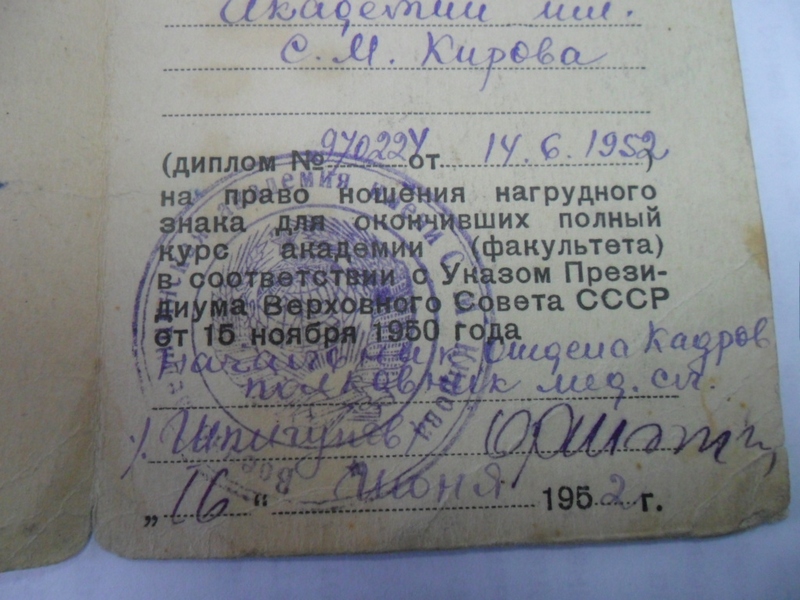 Академии им.
С.М. Кирова
(диплом № 970224 от 14.6.1952)
на право ношения нагрудного
знака для окончивших полный
курс академии (факультета)
в соответствии с Указом Прези-
диума Верховного Совета СССР
от 15 ноября 1950 года
Начальник отдела Кадров
полковник мед. сл.
„16“ июня 1952 г.